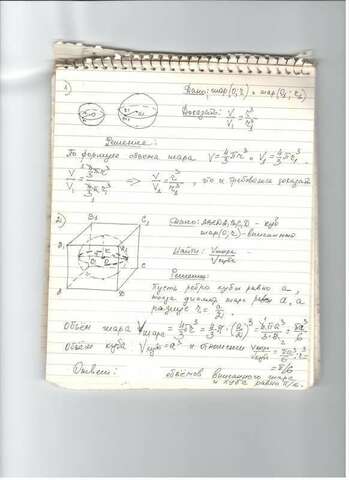 1)
Дано: шар(O; r) и шар(O₁; r₁)
Доказать: V/V₁ = r³/r₁³
Решение:
По формуле объема шара V = 4/3 πr³ и V₁ = 4/3 πr₁³
V/V₁ = (4/3 πr³)/(4/3 πr₁³) => V/V₁ = r³/r₁³, что и требовалось доказать
2)
B₁ C₁
Дано: ABCDA₁B₁C₁D₁ - куб
шар(O; r) - вписанный
Найти: Vшара/Vкуба
Решение:
Пусть ребро куба равно a,
тогда диаметр шара равен a, а
радиус r = a/2.
Объём шара Vшара = 4/3 πr³ = 4/3 π·(a/2)³ = 4·π·a³/3·8 = πa³/6
Объём куба Vкуба = a³ и отношение Vшара/Vкуба = πa³/6 : a³
= π/6
Ответ: объёмов вписанного шара
и куба равно π/6.